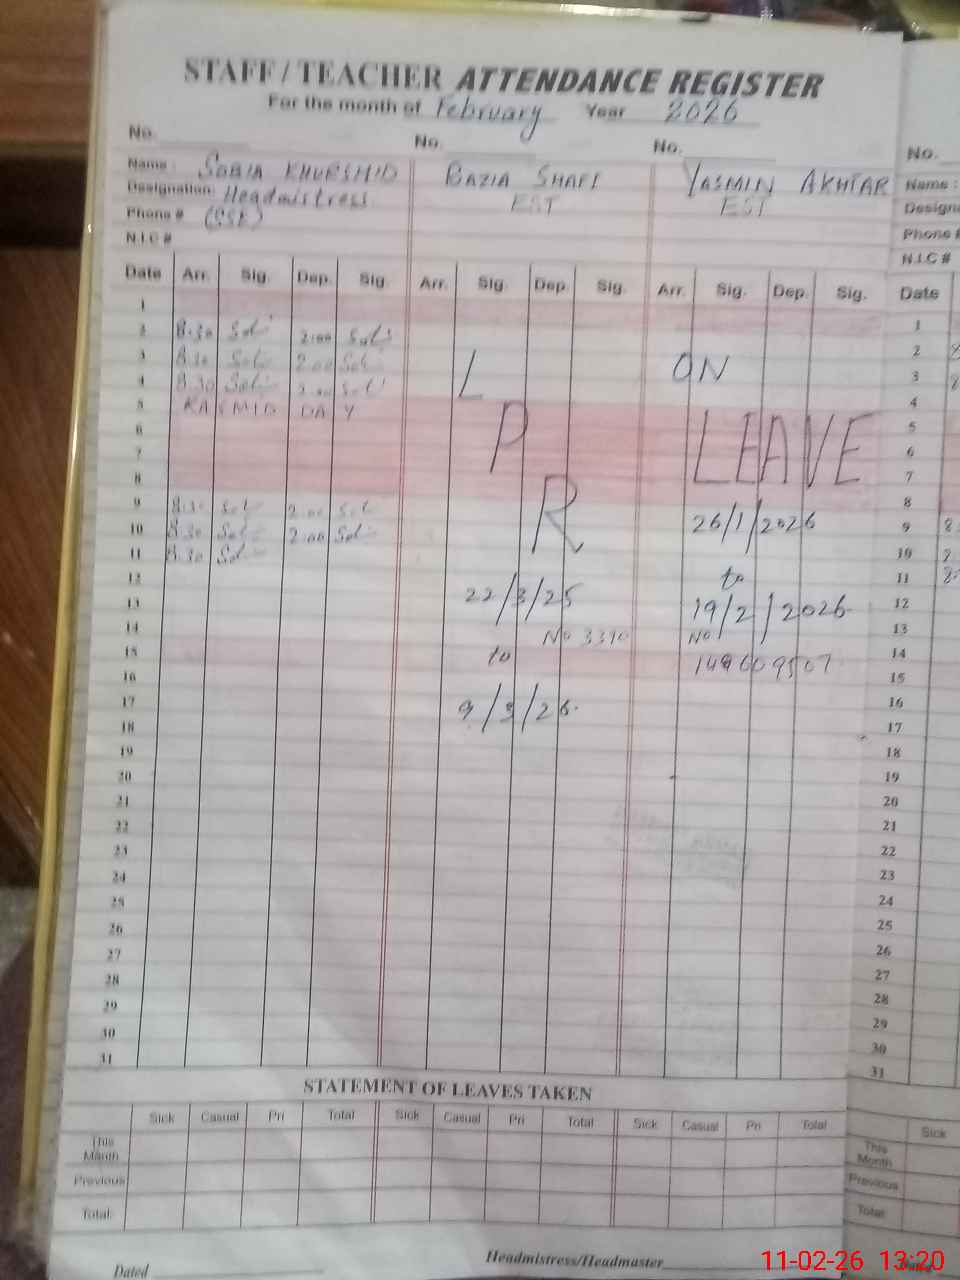 STAFF / TEACHER ATTENDANCE REGISTER
For the month of February Year 2026
No. No. No. No.
Name : SOBIA KHURSHID RAZIA SHAFI YASMIN AKHTAR Name :
Designation: Headmistress EST EST
Phone # (SSE) Phone #
N.I.C # N.I.C #
Date Arr. Sig. Dep. Sig. Arr. Sig. Dep. Sig. Arr. Sig. Dep. Sig. Date
1 1
2 8.30 2.00 2
3 8.30 2.00 L ON 3
4 8.30 2.00 4
5 KASHMIR DAY P LEAVE 5
6 6
7 7
8 R 8
9 8.30 2.00 26/1/2026 9
10 8.30 2.00 10
11 8.30 to 11
12 22/3/25 19/2/2026 12
13 No 3390 No 13
14 to 149609507 14
15 15
16 9/3/26. 16
17 17
18 18
19 19
20 20
21 21
22 22
23 23
24 24
25 25
26 26
27 27
28 28
29 29
30 30
31 31
STATEMENT OF LEAVES TAKEN
Sick Casual Pri Total Sick Casual Pri Total Sick Casual Pri Total Sick
This Month This Month
Previous Previous
Total Total
Dated Headmistress/Headmaster
11-02-26 13:20